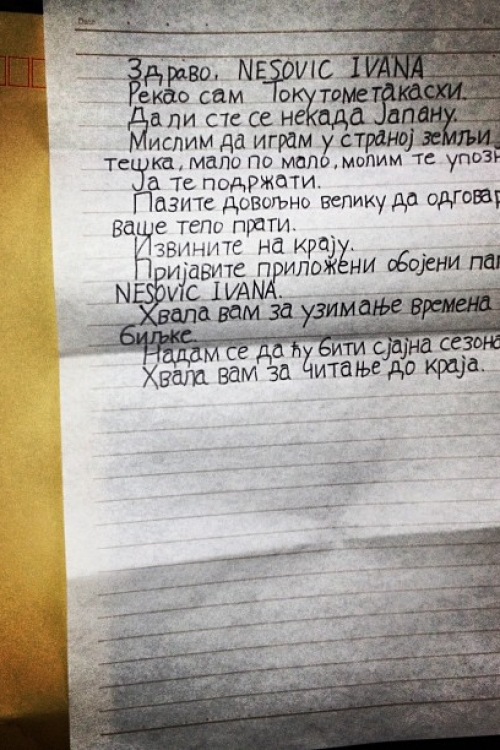 Date
Здраво, NESOVIC IVANA
Рекао сам Токутометакасхи.
Да ли сте се некада Јапану.
Мислим да играм у страној земљи
тешка, мало по мало, молим те упозн
Ја те подржати.
Пазите довољно велику да одговар
ваше тело прати.
Извините на крају.
Пријавите приложени обојени пап
NESOVIC IVANA.
Хвала вам за узимање времена
биљке.
Надам се да ћу бити сјајна сезона
Хвала вам за читање до краја.